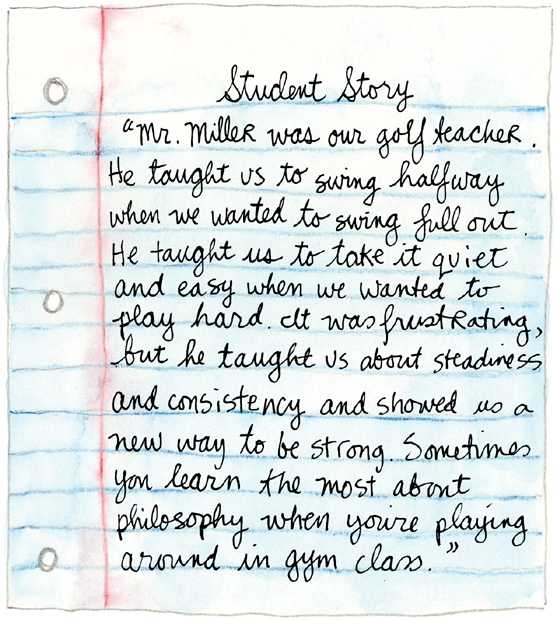 Student Story
“Mr. Miller was our golf teacher.
He taught us to swing halfway
when we wanted to swing full out.
He taught us to take it quiet
and easy when we wanted to
play hard. It was frustrating,
but he taught us about steadiness
and consistency and showed us a
new way to be strong. Sometimes
you learn the most about
philosophy when you're playing
around in gym class.”